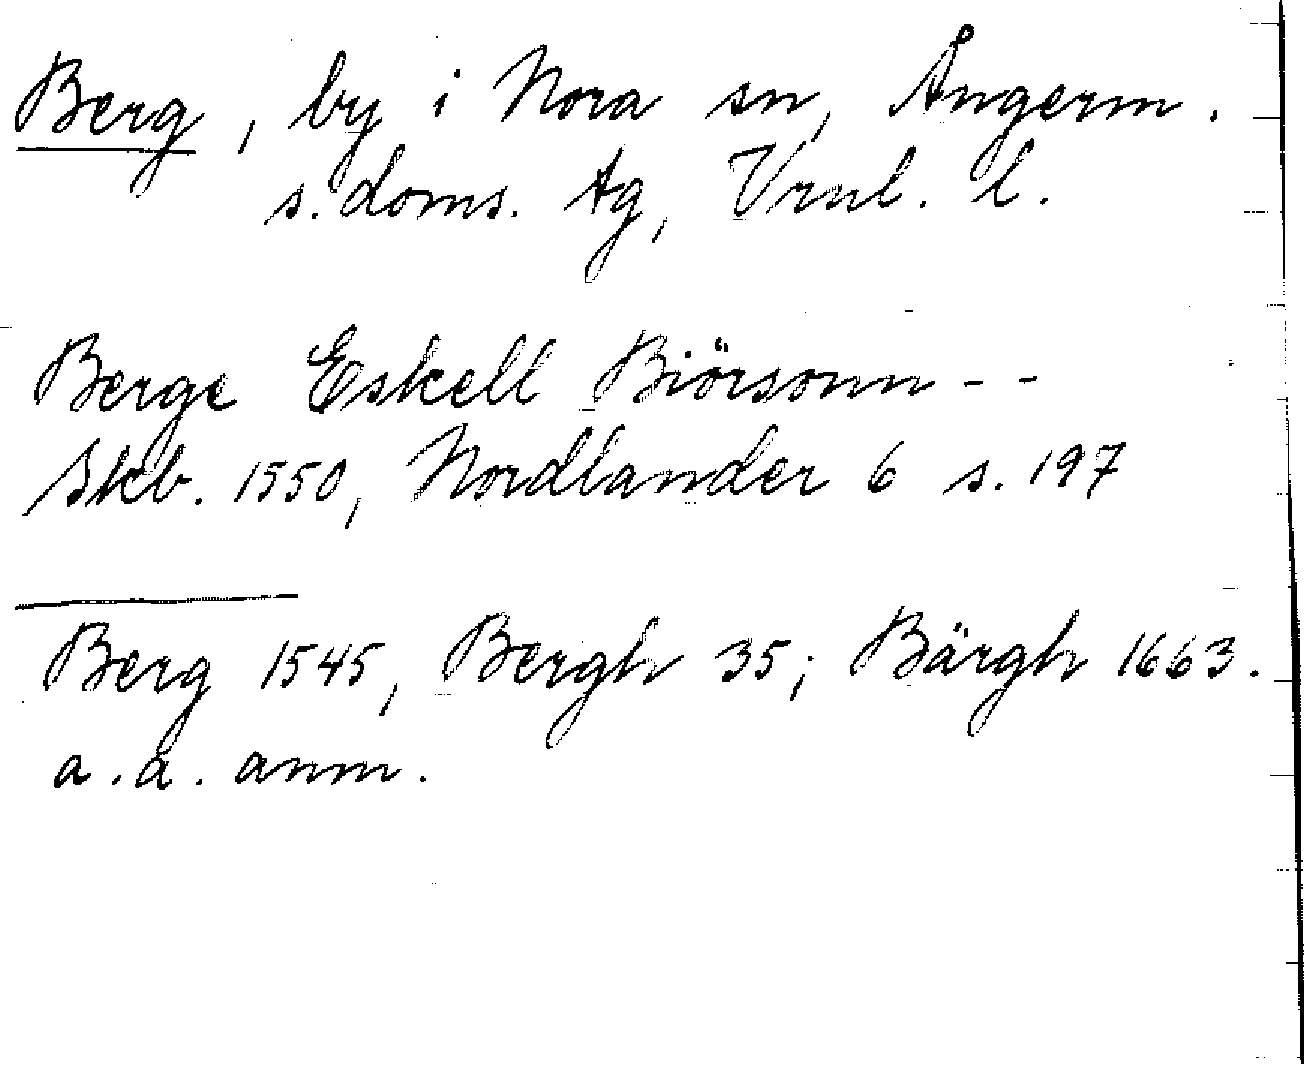 Berg, by i Nora sn, Ångerm.
s. doms. tg, Vrnl. l.
Berge Eskell Biörsonn - -
Skb. 1550, Nordlander 6 s. 197
Berg 1545, Bergh 35; Bärgh 1663.
a.a. anm.